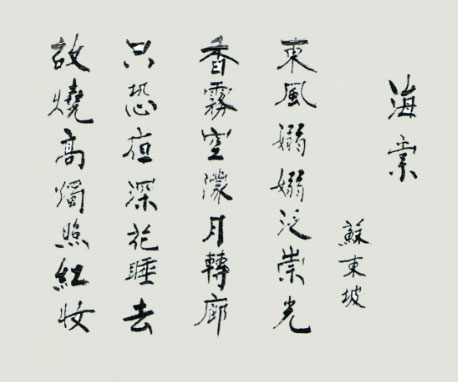 海棠
蘇東坡
東風嫋嫋泛崇光
香霧空濛月轉廊
只恐夜深花睡去
故燒高燭照紅妆